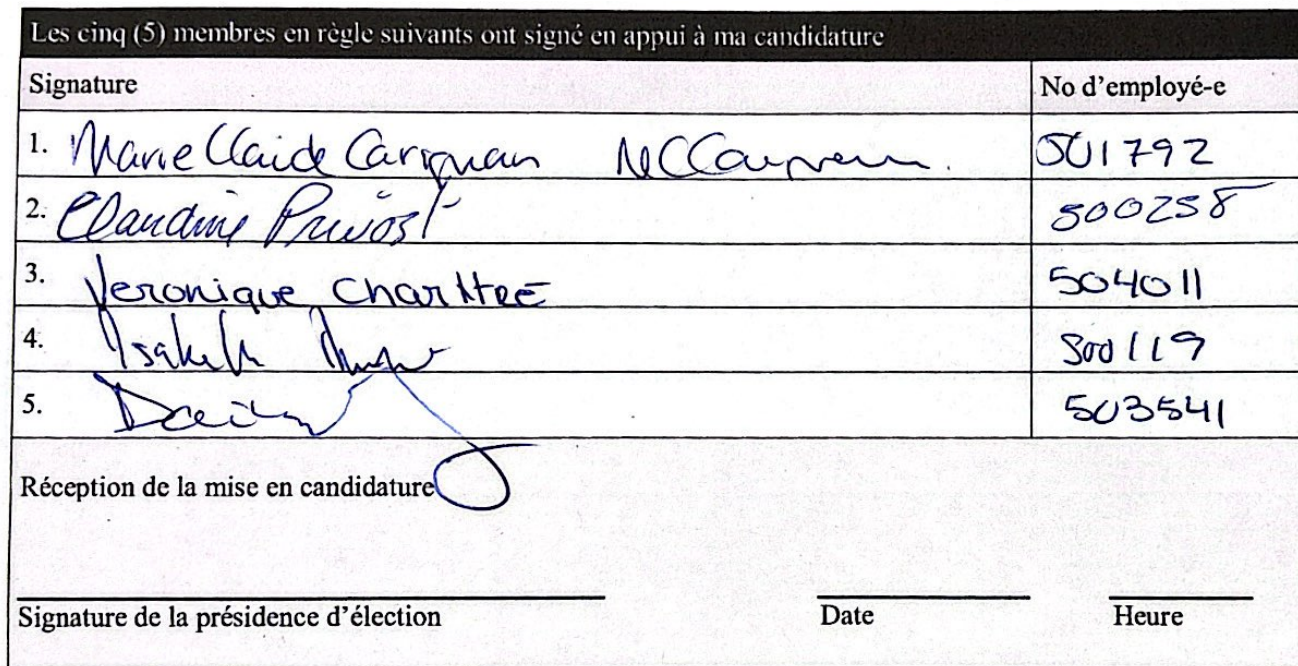 Les cinq (5) membres en règle suivants ont signé en appui à ma candidature
Signature No d'employé-e
1. Marie Claude Carignan 501792
2. Claudine Prévost 500258
3. Veronique CharttrE 504011
4. Isabelle 500119
5. 503541
Réception de la mise en candidature
Signature de la présidence d'élection Date Heure